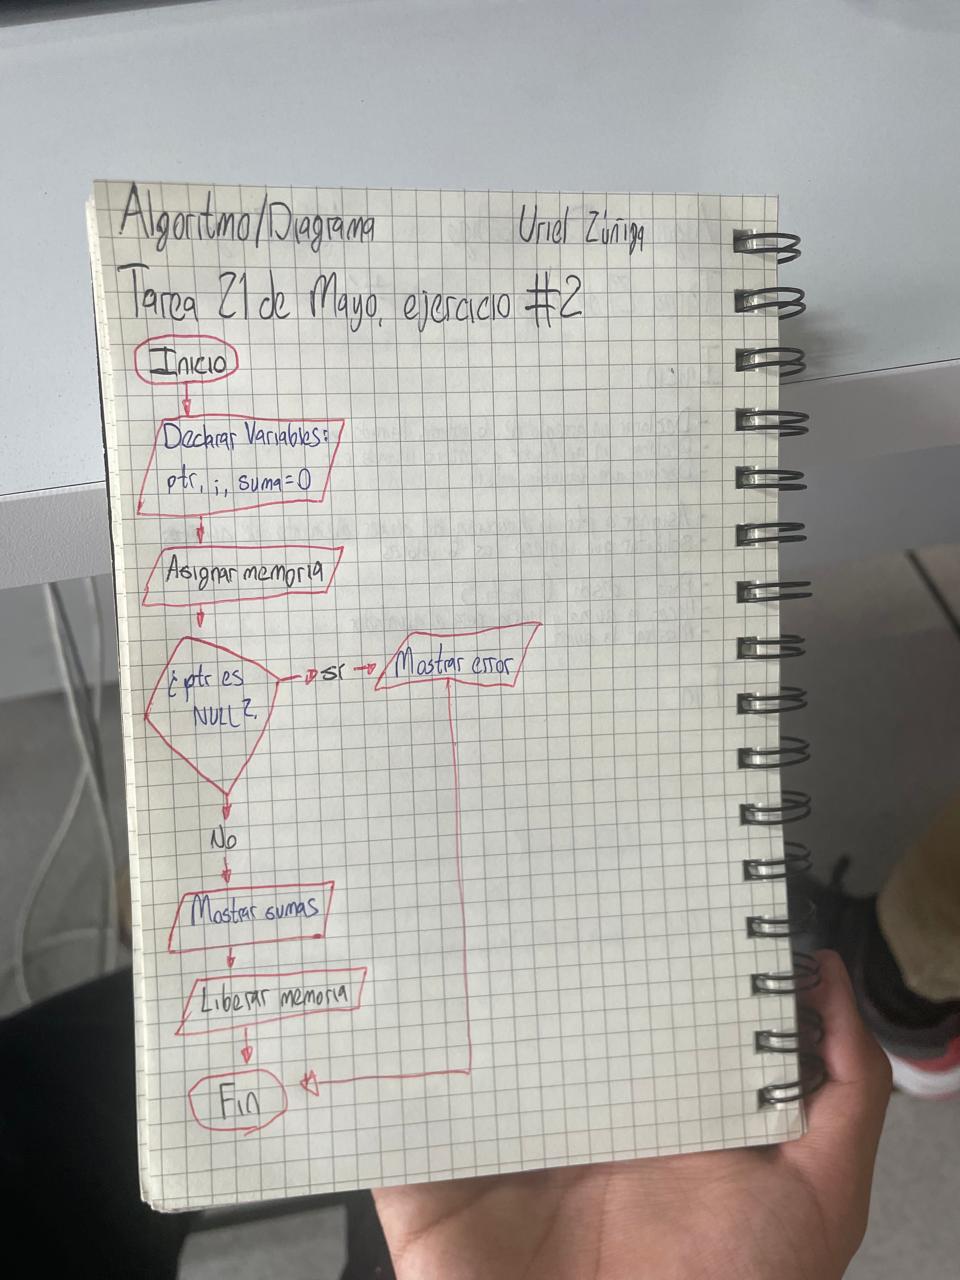 Algoritmo/Diagrama Uriel Zúñiga
Tarea 21 de Mayo, ejercicio #2
Inicio
Declarar Variables:
ptr, i, suma=0
Asignar memoria
¿ptr es
NULL?
si
Mostrar error
No
Mostrar sumas
Liberar memoria
Fin